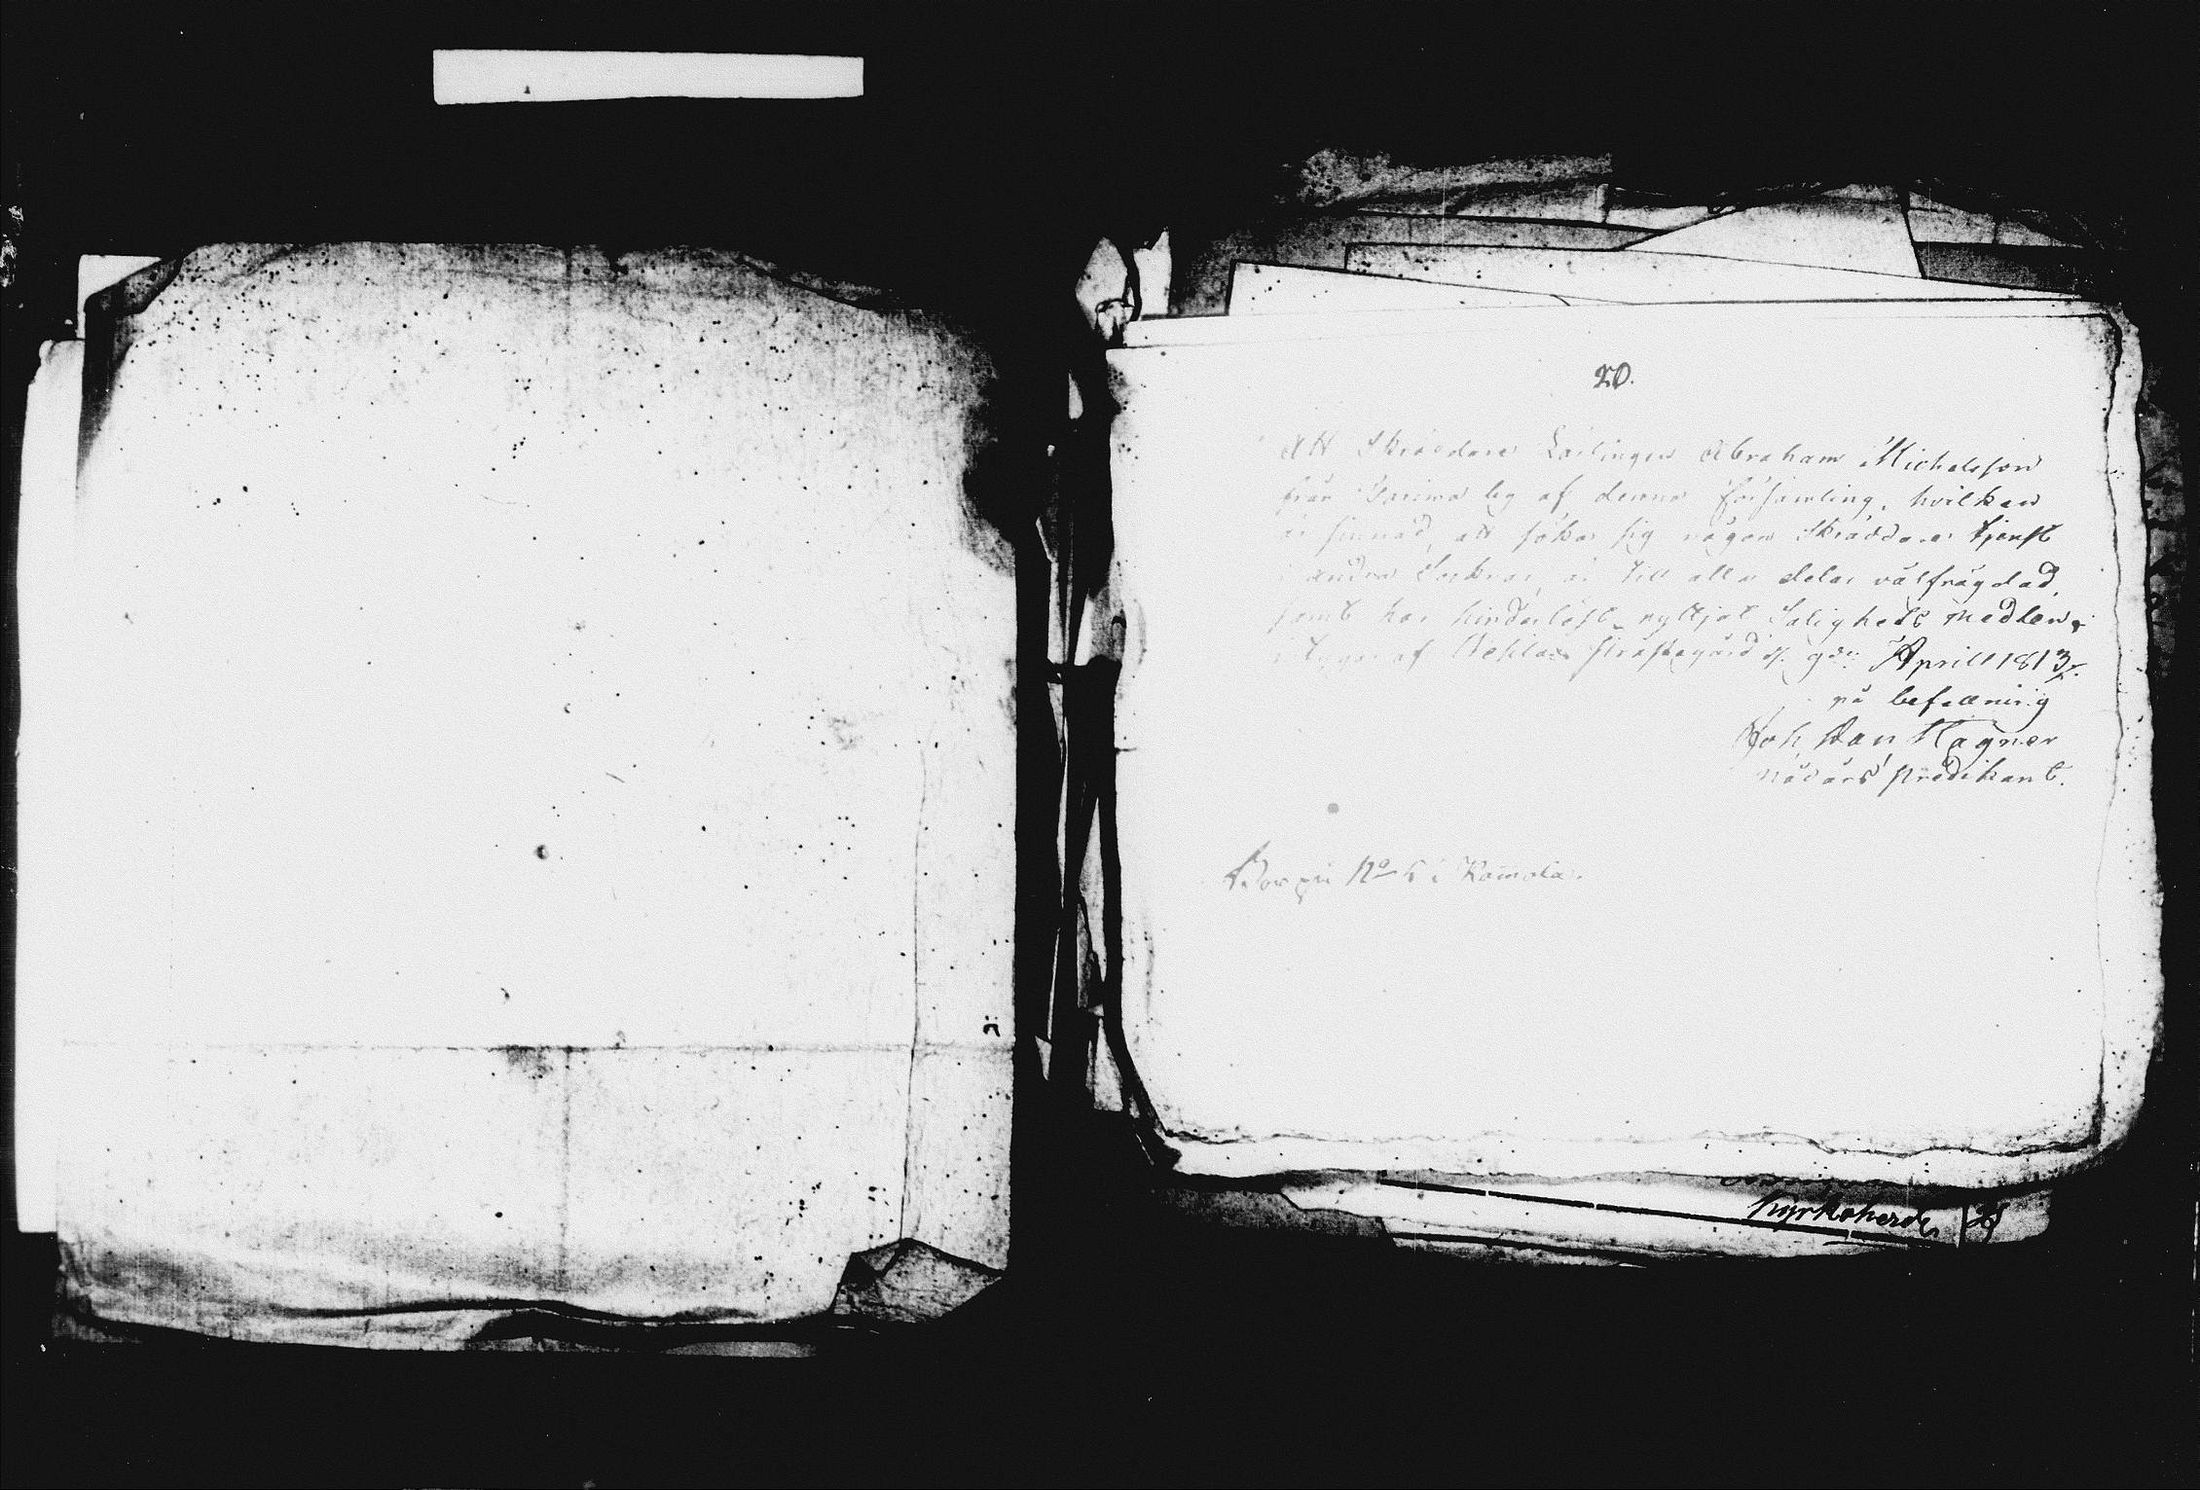 20.
Att Skräddare Lärlingen Abraham Michelsson
från by af denna Församling, hvilken
är sinnad, att söka sig någon Skräddare tjenst
andra Socknar, är till alla delar välfrägdad,
samt har hinderlöst nyttjat Salighets medlen,
af Prästegård d. 9de Aprill 1813.
på befallning
Joh Dan Hagner
nådårs predikant.
Bor på No 6 i
kyrkoherde